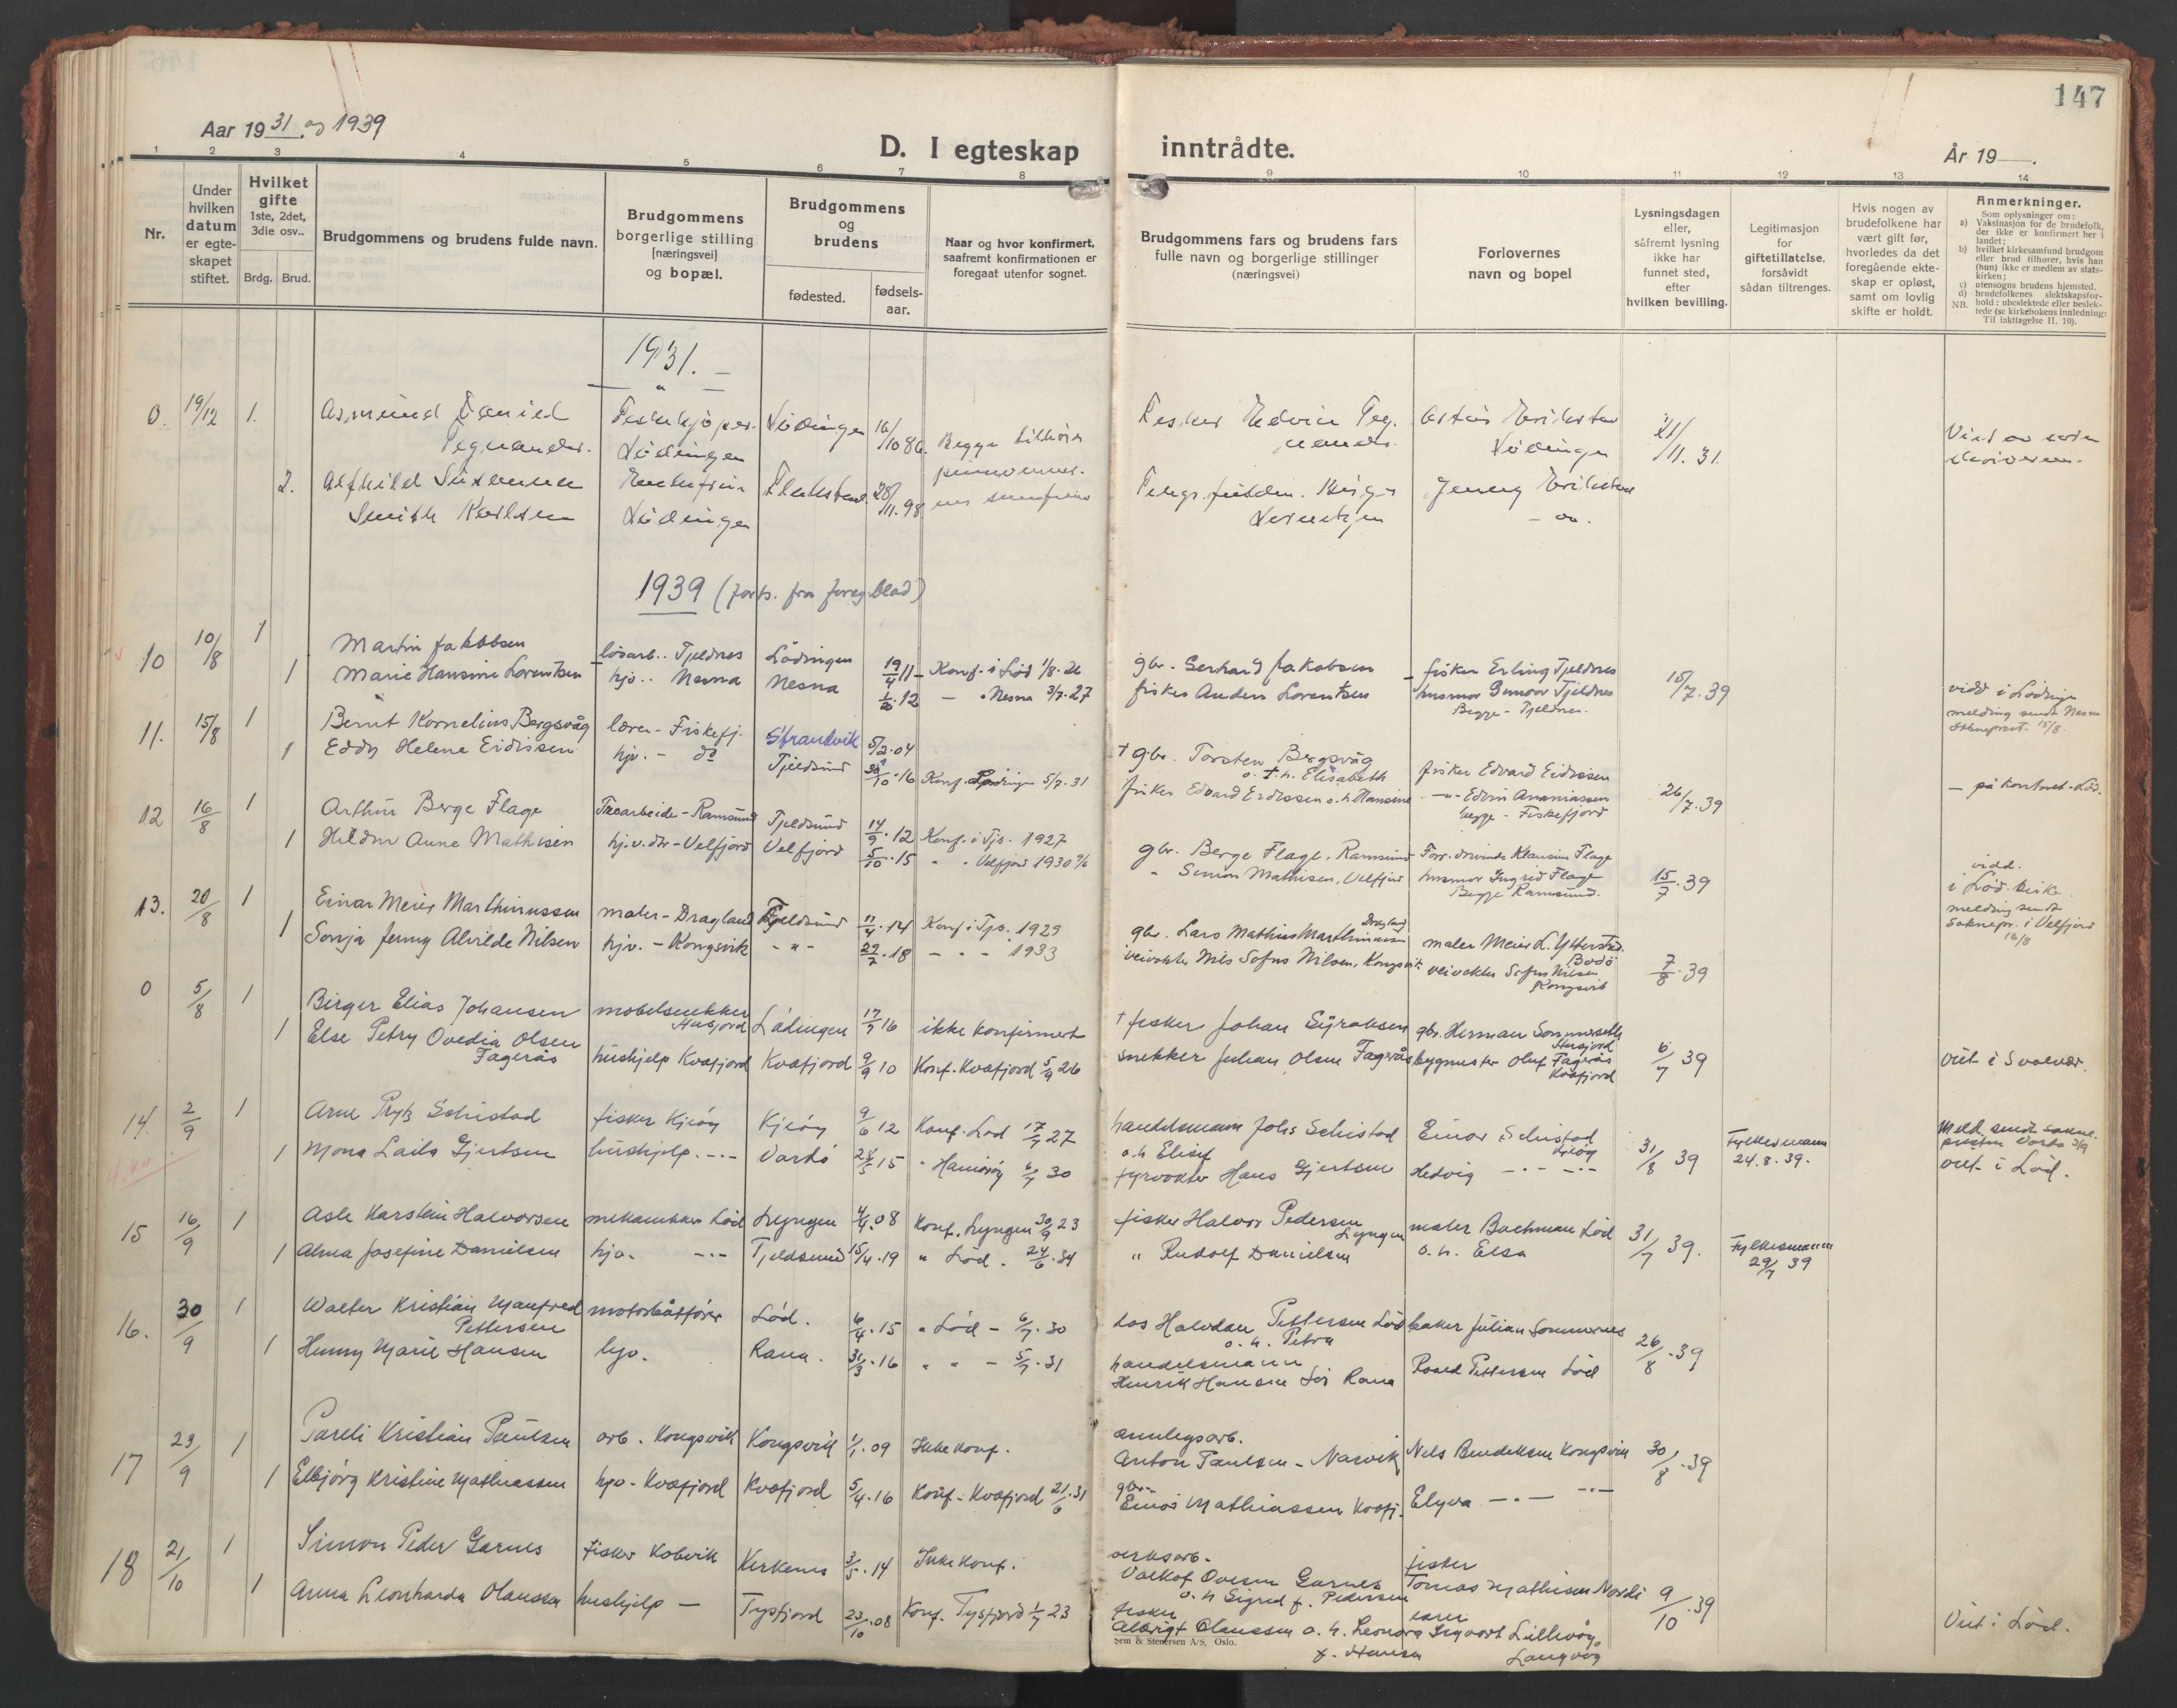 147
Aar 19 31. og 1939
D. I egteskap inntrådte.
År 19 .
1 2 3 4 5 6 7 8 9 10 11 12 13 14
Nr.
Under hvilken datum er egteskapet stiftet.
Hvilket gifte 1ste, 2det, 3die osv..
Brdg. Brud.
Brudgommens og brudens fulde navn.
Brudgommens borgerlige stilling [næringsvei] og bopæl.
Brudgommens og brudens
fødested. fødselsaar.
Naar og hvor konfirmert, saafremt konfirmationen er foregaat utenfor sognet.
Brudgommens fars og brudens fars fulle navn og borgerlige stillinger (næringsvei)
Forlovernes navn og bopel
Lysningsdagen eller, såfremt lysning ikke har funnet sted, efter hvilken bevilling.
Legitimasjon for giftetillatelse, forsåvidt sådan tiltrenges.
Hvis nogen av brudefolkene har vært gift før, hvorledes da det foregående ekteskap er opløst, samt om lovlig skifte er holdt.
Anmerkninger.
Som oplysninger om:
a) Vaksinasjon for de brudefolk, der ikke er konfirmert her i landet;
b) hvilket kirkesamfund brudgom eller brud tilhører, hvis han (hun) ikke er medlem av statskirken;
c) utensogns brudens hjemsted.
d) brudefolkenes slektskapsforhold: ubeslektede eller beslektede (se kirkebokens innledning:
NB. Til iakttagelse II. 10).
1931.
0. 19/12 1. Asmund Daniel Fiskekjøper. Lødingen 16/10 86. Begge tilhører Fisker Edvin Teg
Tegnander. Lødingen pinsevenner. nander. Lødingen 21/11. 31.
2. Alfhild Susanna Enkefrue Flakstad 28/11.98 Jenny Eriksen
Smith Karlsen Lødingen
1939 (forts. fra foreg. blad)
10 10/8 1 Martin Jakobsen løsarb.. Tjeldnes Lødingen 19/4 11 Konf. i Lød 1/8.26 gbr. Gerhard Jakobsen fisker Erling Tjeldnes 15/7.39
1 Marie Hansine Lorentsen hjv.. Nesna Nesna 12 Nesna 3/7.27 fisker Anders Lorentsen husmor Gunvor Tjeldnes
Begge - Tjeldnes.
vidd i Lødingen
melding sendt Nesna
Sokneprest. 15/8
11. 15/8 1 Bernt Kornelius Bergsvåg lærer - Fiskefj. Strandvik 5/2.04 † gbr. Torsten Bergsvåg
o. † h. Elisabeth
1 Eddy Helene Eidissen hjv. - do Tjeldsund 30/10.16 Konf. Lødingen 5/7.31 fisker Edvard Eidissen o. h Hansine fisker Edvard Eidissen
-"- Edvin Ananiassen
begge - Fiskefjord
26/7.39 - på kontoret - Lød.
12 16/8 1 Arthur Berge Flage Ramsund Tjeldsund 14/9.12 Konf. i Tjs. 1927 gbr. Berge Flage, Ramsund Klausine Flage 15/7.39
1 Anne Mathisen hj.v. dtr - Velfjord Velfjord 5/10.15 " Velfjord 1930 " Simon Mathisen, Velfjord husmor Ingrid Flage
Begge Ramsund.
vidd.
i Lød. kirke
melding sendt
Soknepr. i Velfjord
16/8
13. 20/8 1 Einar Meier Marthinussen maler - Dragland Tjeldsund 11/4.14 Konf. i Tjs. 1929 gbr. Lars Mathius Marthinussen Dragland maler Meier L. Bodø 7/8.39
1 Sonja Jenny Alvilde Nilsen hjv. - Kongsvik -"- 22/7.18 1933 veivokter Nils Sofus Nilsen, Kongsvik veivokter Sofus Nilsen Kongsvik
0 5/8 1 Birger Elias Johansen møbelsnekker Husjord Lødingen 17/7 16 ikke konfirmert † fisker Johan Syraksen gbr. Herman Sommerseth Husjord 6/7 39
1 Else Petry Ovedia Olsen Fagerås hushjelp Kvæfjord Kvæfjord 9/9 10 Konf. Kvæfjord 5/9 26 snekker Julian Olsen Fagerås bygmester Oluf Fagerås Kvæfjord
viet i Svolvær.
14. 2/9 1 Arne Prytz Schistad fisker Kjeøy Kjeøy 9/6 12 Konf. Lød 17/7 27 handelsmann Johs Schistad Einar Schistad Kjeøy 31/8 39 Fylkesmann 24.8.39.
o. h Elisif
1 Mona Laila Gjertsen hushjelp. -"- Vardø 28/5 15 30 fyrvokter Hans Gjertsen Hedvig -"- -"-
Meld. sendt sokne-
presten Vardø 3/9
viet i Lød.
15 16/9 1 Asle Karstein Halvorsen Lød Lyngen 4/4.08 Konf. Lyngen 30/9 23 fisker Halvor Pedersen Lyngen maler Bachman Lød 31/7 39. Fylkesmann 29/7 39
1 Alma Josefine Danielsen hjv. -"- Tjeldsund 15/4.19 " Lød. 24/6.34 " Rudolf Danielsen o. h. Elsa
16. 30/9 1 Walter Kristian Manfred Pettersen motorbåtfører Lød. 6/4.15 " Lød - 6/7.30 los Halvdan Pettersen Lød baker Julian Sommernes 26/8.39
o. h. Petra
1 Hunny Marie Hansen hjv. Rana. 31/3.16 " " - 5/7.31 handelsmann
Henrik Hansen Sør Rana Pettersen Lød
17 23/9 1 Pareli Kristian Paulsen arb. Kongsvik Kongsvik 1/1.09 Ikke konf. anlegsarb.
Anton Paulsen - Narvik Nils Bendiksen Kongsvik 30/8.39
1 Elbjørg Kristine Mathiassen hjv - Kvæfjord Kvæfjord 5/4.16 Konf - Kvæfjord 21/6.31 gbr.
Einar Mathiassen Kvæfj. -"- -"-
18 21/10 1 Simon Peder Garnes fisker Kobvik Kirkenes 3/5.14 Ikke konf. verksarb.
Ovesen Garnes
o. h Sigrid f. Pedersen
fisker
Tomas Mathisen 9/10.39
1 Anna Leonharda Olaussen hushjelp - Tysfjord 23/10.08 Konf. Tysfjord 1/7 23 fisker
Albrigt Olaussen o. h. Leonora
f. Hansen
Ingvart Lillevåg,
Langvåg
Viet i Lød.
Sem & Stenersen A/S, Oslo.